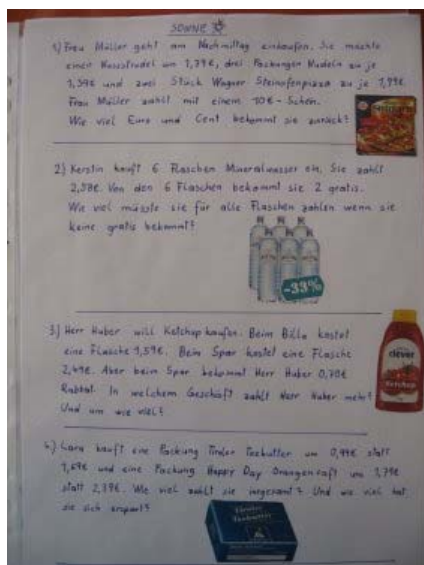 SONNE
1.) Frau Müller geht am Nachmittag einkaufen. Sie möchte
einen um 1,79€, drei Packungen Nudeln zu je
1,59€ und zwei Stück Wagner Steinofenpizza zu je 1,99€.
Frau Müller zahlt mit einem 10€ - Schein.
Wie viel Euro und Cent bekommt sie zurück?
2.) Kerstin kauft 6 Flaschen Mineralwasser ein. Sie zahlt
2,58€. Von den 6 Flaschen bekommt sie 2 gratis.
Wie viel müsste sie für alle Flaschen zahlen wenn sie
keine gratis bekommt?
-33%
3.) Herr Huber will Ketchup kaufen. Beim Billa kostet
eine Flasche 1,59€. Beim Spar kostet eine Flasche
2,49€. Aber beim Spar bekommt Herr Huber 0,70€
Rabbat. In welchem Geschäft zahlt Herr Huber mehr?
Und um wie viel?
clever
Ketchup
4.) Lara kauft eine Packung Tiroler Teebutter um 0,99€ statt
1,69€ und eine Packung Happy Day Orangensaft um 1,79€
statt 2,39€. Wie viel zahlt sie insgesamt? Und wie viel hat
sie sich erspart?
Tiroler
Teebutter